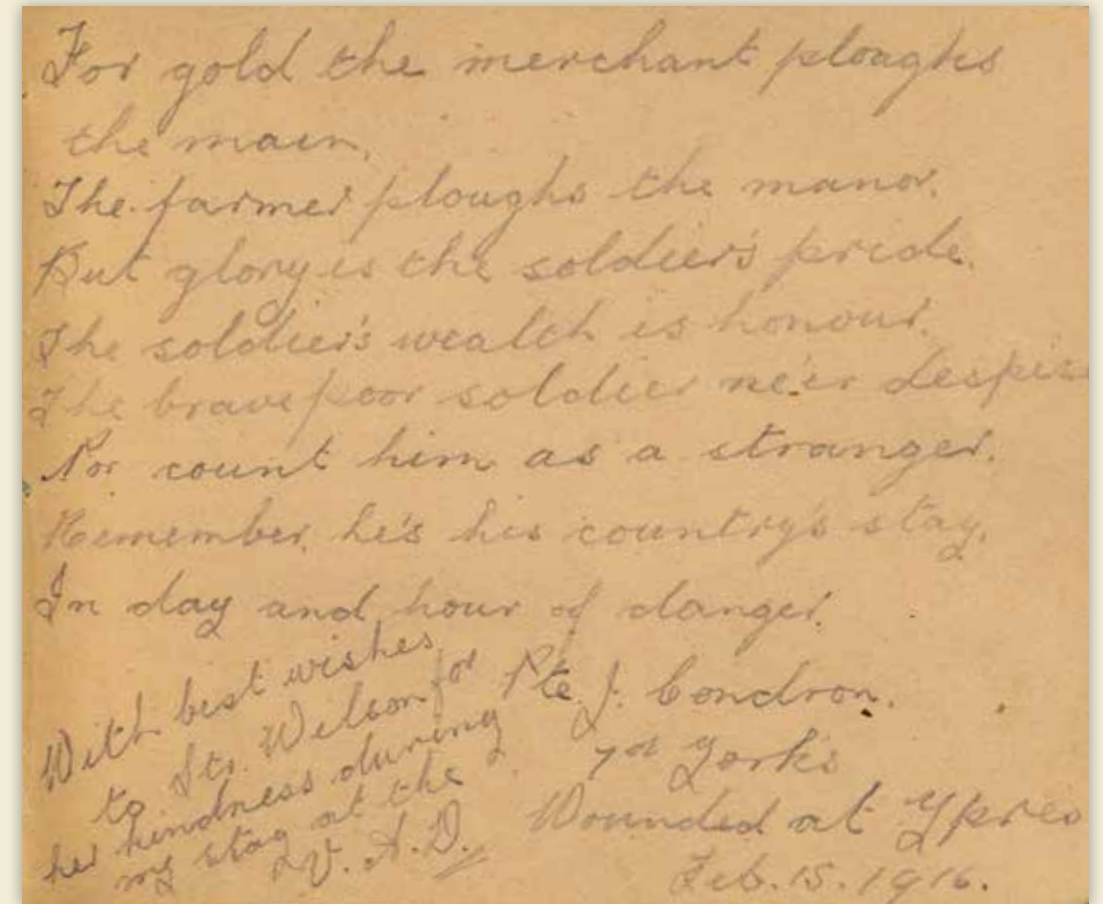 For gold the merchant ploughs
the main,
The farmer ploughs the manor.
But glory is the soldier's pride.
The soldier's wealth is honour.
The brave poor soldier ne'er despise
Nor count him as a stranger.
Remember, he's his country's stay,
In day and hour of danger.
With best wishes
to Str. Wilson for
her kindness during
my stay at the
V.A.D.
Pte. J. Condron.
7th Yorks
Wounded at Ypres
Feb. 15. 1916.